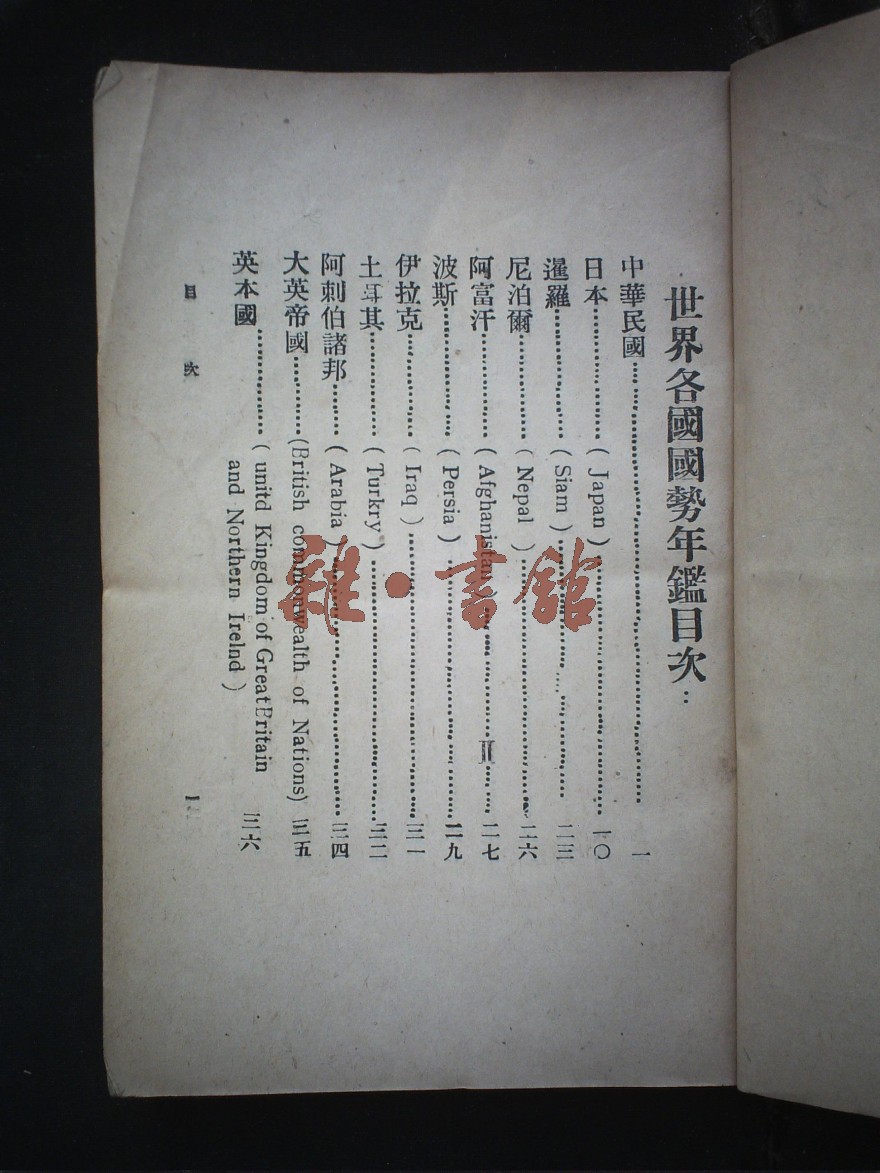 世界各國國勢年鑑目次
中華民國 一
日本 ( Japan ) 一〇
暹羅 ( Siam ) 二三
尼泊爾 ( Nepal ) 二六
阿富汗 ( Afghanistan ) 二七
波斯 ( Persia ) 二九
伊拉克 ( Iraq ) 三一
土耳其 ( Turkry ) 三二
阿剌伯諸邦 ( Arabia ) 三四
大英帝國 (British commonwealth of Nations) 三五
英本國 ( unitd Kingdom of Great Britain
and Northern Irelnd ) 三六
目次 一
雜·書館